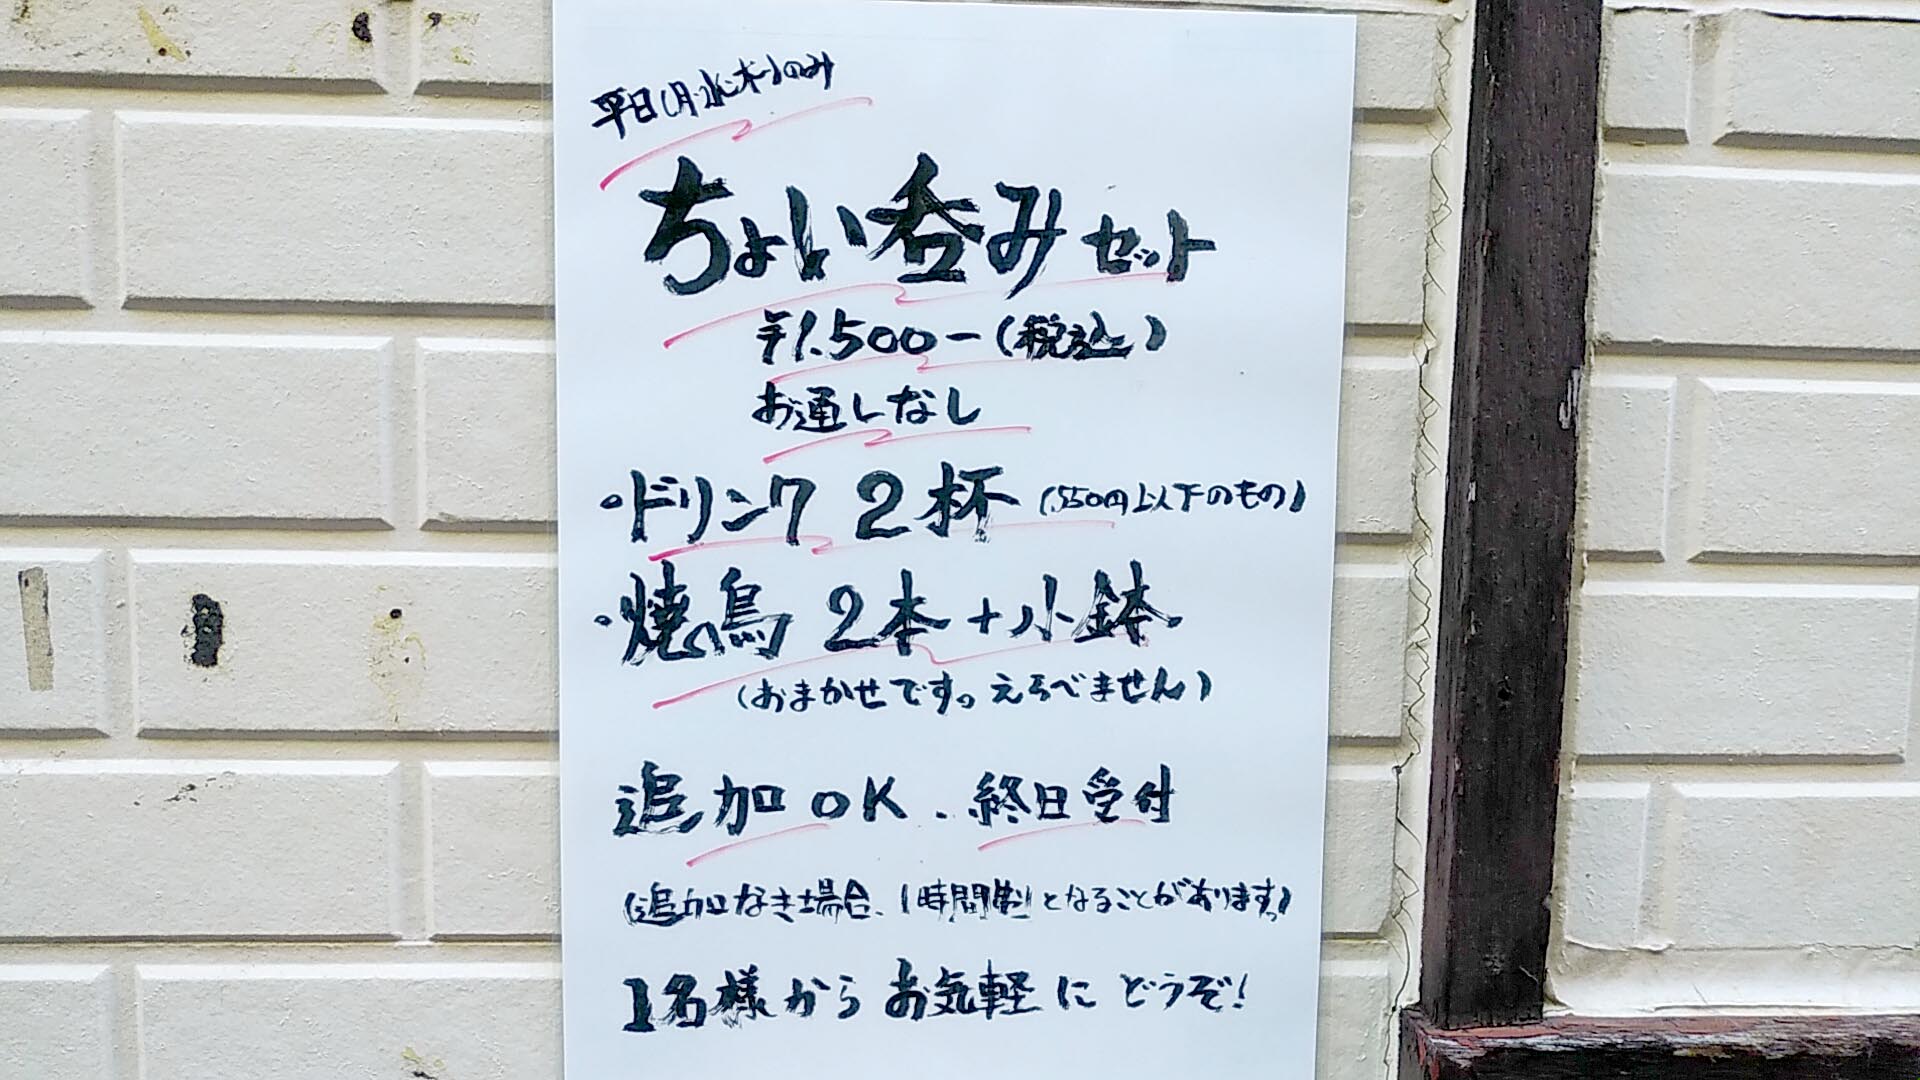 平日(月・水・木)のみ
ちょい呑みセット
¥1.500−(税込)
お通しなし
・ドリンク 2杯(550円以下のもの)
・焼鳥 2本+小鉢
(おまかせです。えらべません)
追加OK、終日受付
(追加なき場合、1時間制となることがあります。)
1名様からお気軽にどうぞ!